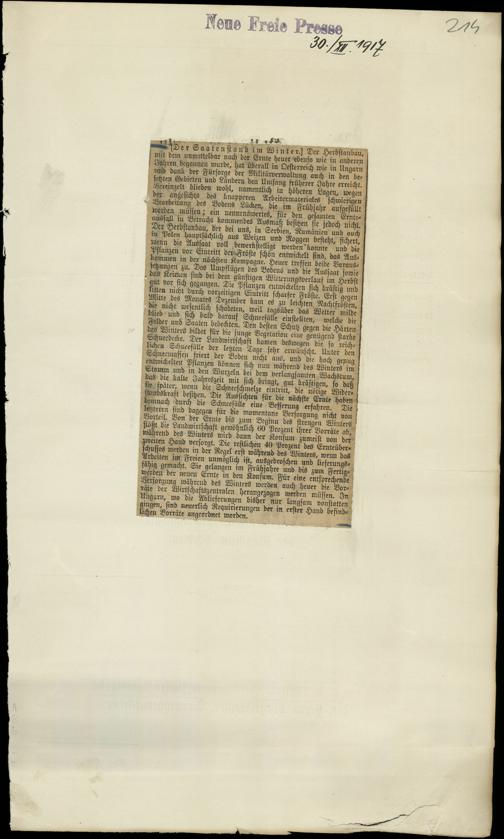 Neue Freie Presse
214
30./XII. 1917
[Der Saatenstand im Winter.] Der Herbstanbau,
mit dem unmittelbar nach der Ernte heuer ebenso wie in anderen
Jahren begonnen wurde, hat überall in Oesterreich wie in Ungarn
und dank der Fürsorge der Militärverwaltung auch in den be-
setzten Gebieten und Ländern den Umfang früherer Jahre erreicht.
Vereinzelt blieben wohl, namentlich in höheren Lagen, wegen
der angesichts des knapperen Arbeitermateriales schwierigen
Bearbeitung des Bodens Lücken, die im Frühjahr ausgefüllt
werden müssen; ein nennenswertes, für den gesamten Ernte-
ausfall in Betracht kommendes Ausmaß besitzen sie jedoch nicht.
Der Herbstanbau, der bei uns, in Serbien, Rumänien und auch
in Polen hauptsächlich aus Weizen und Roggen besteht, sichert,
wenn die Aussaat voll bewerkstelligt werden konnte und die
Pflanzen vor Eintritt der Fröste schön entwickelt sind, das Aus-
kommen in der nächsten Kampagne. Heuer treffen beide Voraus-
setzungen zu. Das Umpflügen des Bodens und die Aussaat sowie
das Keimen sind bei dem günstigen Witterungsverlauf im Herbst
gut vor sich gegangen. Die Pflanzen entwickelten sich kräftig und
litten nicht durch vorzeitigen Eintritt scharfer Fröste. Erst gegen
Mitte des Monates Dezember kam es zu leichten Nachtfrösten,
die nicht wesentlich schadeten, weil tagsüber das Wetter milde
blieb und sich bald darauf Schneefälle einstellten, welche die
Felder und Saaten bedeckten. Den besten Schutz gegen die Härten
des Winters bildet für die junge Vegetation eine genügend starke
Schneedecke. Der Landwirtschaft kamen deswegen die so reich-
lichen Schneefälle der letzten Tage sehr erwünscht. Unter den
Schneemassen friert der Boden nicht aus, und die hoch genug
entwickelten Pflanzen können sich nun während des Winters im
Stamm und in den Wurzeln bei dem verlangsamten Wachstum,
das die kalte Jahreszeit mit sich bringt, gut kräftigen, so daß
sie später, wenn die Schneeschmelze eintritt, die nötige Wider-
standskraft besitzen. Die Aussichten für die nächste Ernte haben
demnach durch die Schneefälle eine Besserung erfahren. Die
letzteren sind dagegen für die momentane Versorgung nicht von
Vorteil. Von der Ernte bis zum Beginn des strengen Winters
stößt die Landwirtschaft gewöhnlich 60 Prozent ihrer Vorräte ab,
während des Winters wird dann der Konsum zumeist von der
zweiten Hand versorgt. Die restlichen 40 Prozent des Ernteüber-
schusses werden in der Regel erst während des Winters, wenn das
Arbeiten im Freien unmöglich ist, ausgedroschen und lieferungs-
fähig gemacht. Sie gelangen im Frühjahre und bis zum Fertig-
werden der neuen Ernte in den Konsum. Für eine entsprechende
Versorgung während des Winters werden auch heuer die Vor-
räte der Wirtschaftszentralen herangezogen werden müssen. In
Ungarn, wo die Ablieferungen bisher nur langsam vonstatten
gingen, sind neuerlich Requirierungen der in erster Hand befind-
lichen Vorräte angeordnet worden.